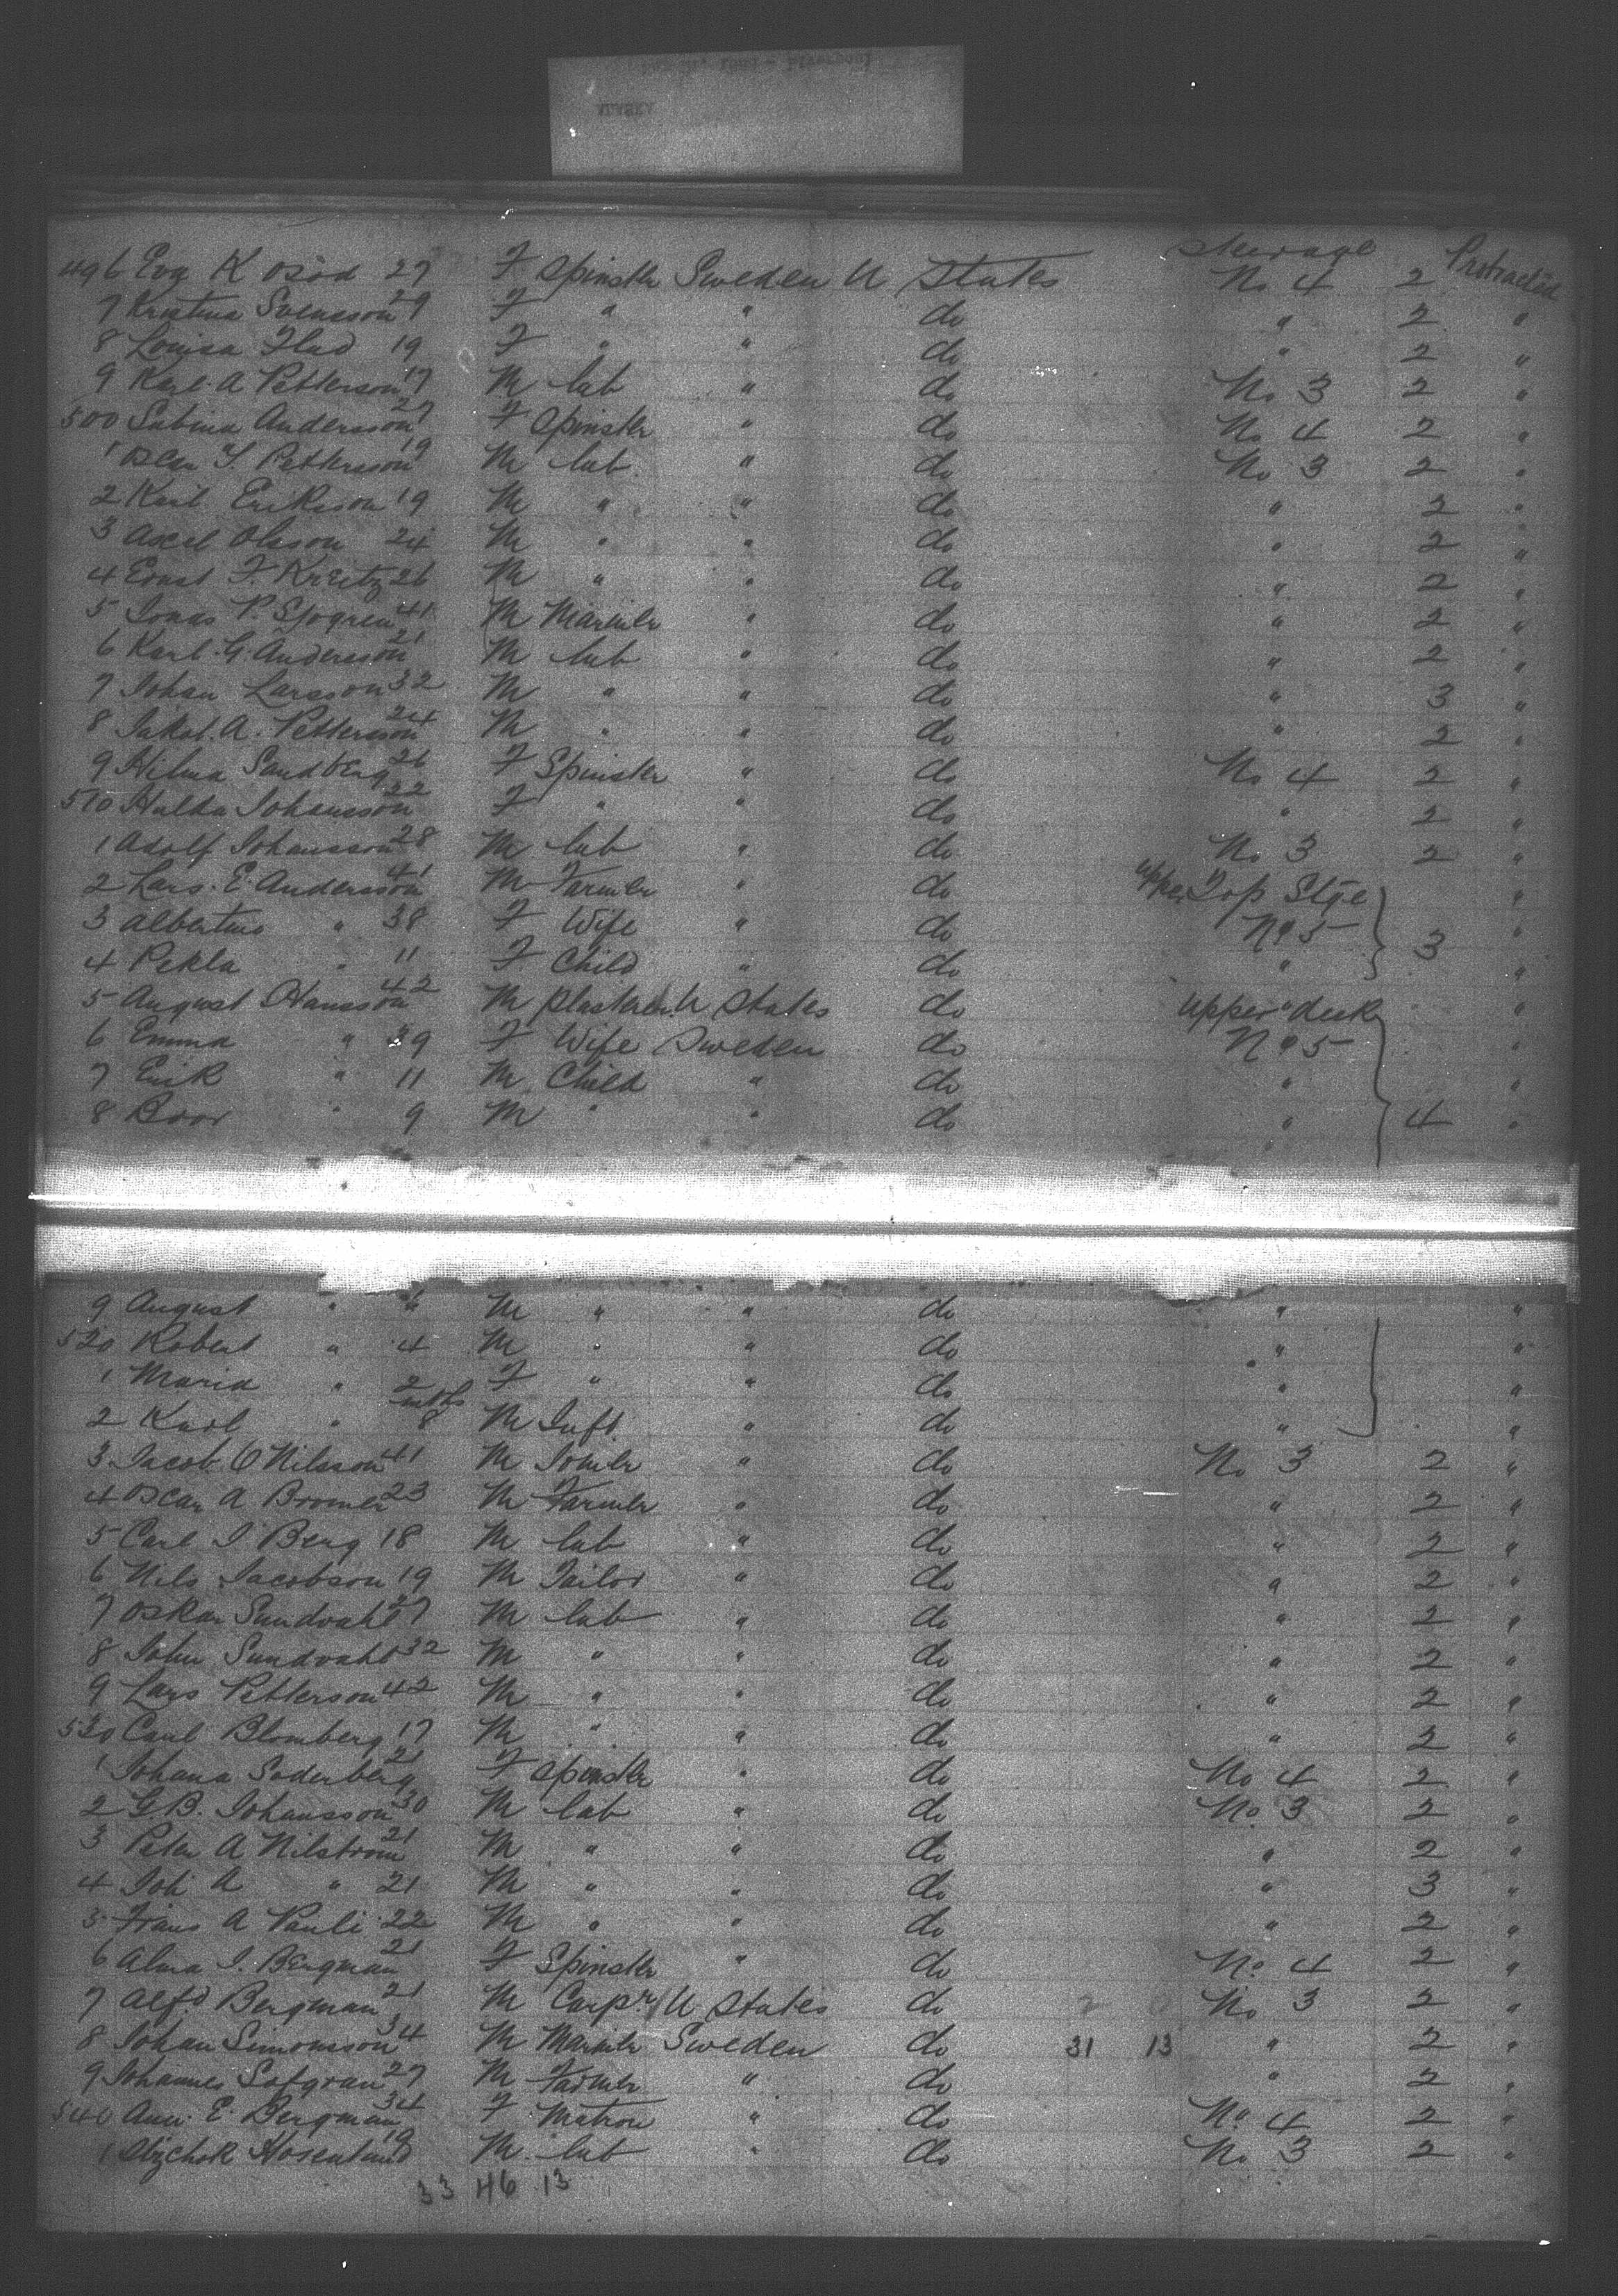 ALASKA
Steerage
496 Eva K Osod 27 F Spinster Sweden U States No 4 2 Protracted
7 Kristina Svensson 29 F " " do " 2 "
8 Louisa Flud 19 F " " do " 2 "
9 Karl A Petterson 17 M lab " do No 3 2 "
500 Sabina Andersson 27 F Spinster " do No 4 2 "
1 Oscar F. Pettersson 19 M lab " do No 3 2 "
2 Karl Erikson 19 M " " do " 2 "
3 Axel Olsson 24 M " " do " 2 "
4 Ernst F. Kreitz 26 M " " do " 2 "
5 Jonas P. Sjogren 41 M Mariner " do " 2 "
6 Karl G. Andersson 21 M lab " do " 2 "
7 Johan Larsson 32 M " " do " 3 "
8 Jakob A. Pettersson 24 M " " do " 2 "
9 Hilma Sandberg 26 F Spinster " do No 4 2 "
510 Hulda Johansson 22 F " " do " 2 "
1 Adolf Johansson 28 M lab " do No 3 2 "
2 Lars E. Andersson 41 M Farmer " do upper Top Stge "
3 Albertina " 38 F Wife " do No 5 3 "
4 Pekla " 11 F Child " do " "
5 August Hansson 42 M plasterer U States do Upper deck "
6 Emma " 39 F Wife Sweden do No 5 "
7 Erik " 11 M Child " do " "
8 Boor " 9 M " " do " 4 "
9 August " M " " do " "
520 Robert " 4 M " " do " "
1 Maria " 2 F " " do " "
mths
2 Karl " 8 M Inft " do " "
3 Jacob O Nilsson 41 M Joiner " do No 3 2 "
4 Oscar A Bromen 23 M Farmer " do " 2 "
5 Carl I Berg 18 M lab " do " 2 "
6 Nils Jacobson 19 M Tailor " do " 2 "
7 Oskar Sundvahl 27 M lab " do " 2 "
8 John Sundvahl 32 M " " do " 2 "
9 Lars Petterson 42 M " " do " 2 "
530 Carl Blomberg 17 M " " do " 2 "
1 Johana Soderberg 21 F Spinster " do No 4 2 "
2 G B. Johansson 30 M lab " do No 3 2 "
3 Peter A Nilstrom 21 M " " do " 2 "
4 Joh A " 21 M " " do " 3 "
5 Frans A Pauli 22 M " " do " 2 "
6 Alma I. Bergman 21 F Spinster " do No 4 2 "
7 Alfd Bergman 21 M Carpr U States do No 3 2 "
8 Johan Simonsson 34 M Mariner Sweden do 31 13 " 2 "
9 Johannes Sofgran 27 M Farmer " do " 2 "
540 Ann E. Bergman 34 F Matron " do No 4 2 "
1 19 M lab " do No 3 2 "
33 46 13